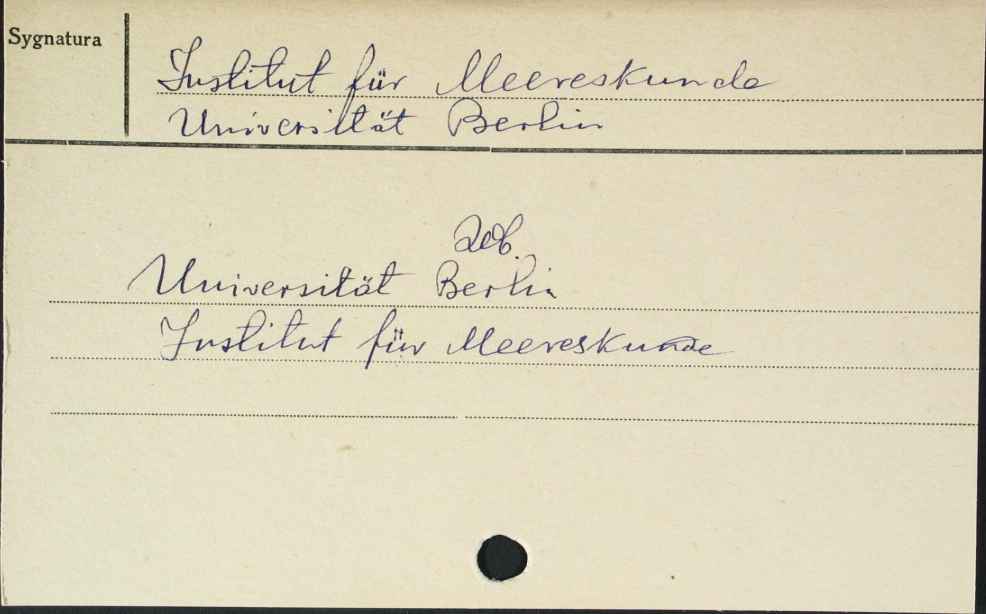 Sygnatura
Institut für Meereskunde
Universität Berlin
Zob.
Universität Berlin
Institut für Meereskunde